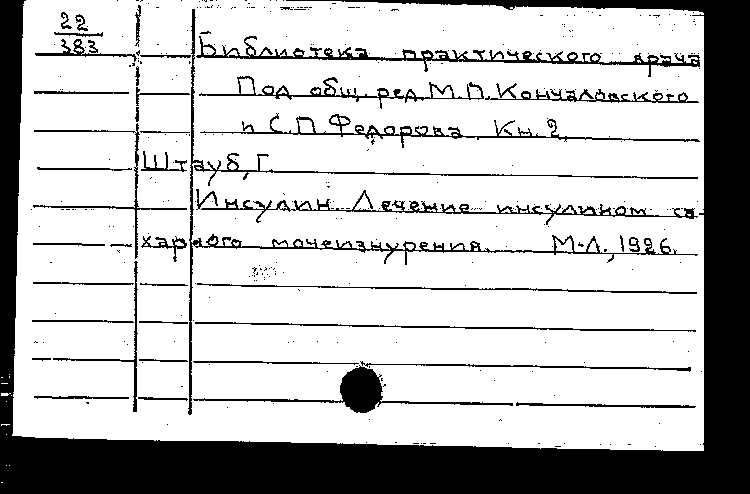 22
383
Библиотека практического врача
Под общ. ред. М.П. Кончаловского
и С.П. Федорова. Кн. 2.
Штауб, Г.
Инсулин. Лечение инсулином са-
харного мочеизнурения. М-Л., 1926.